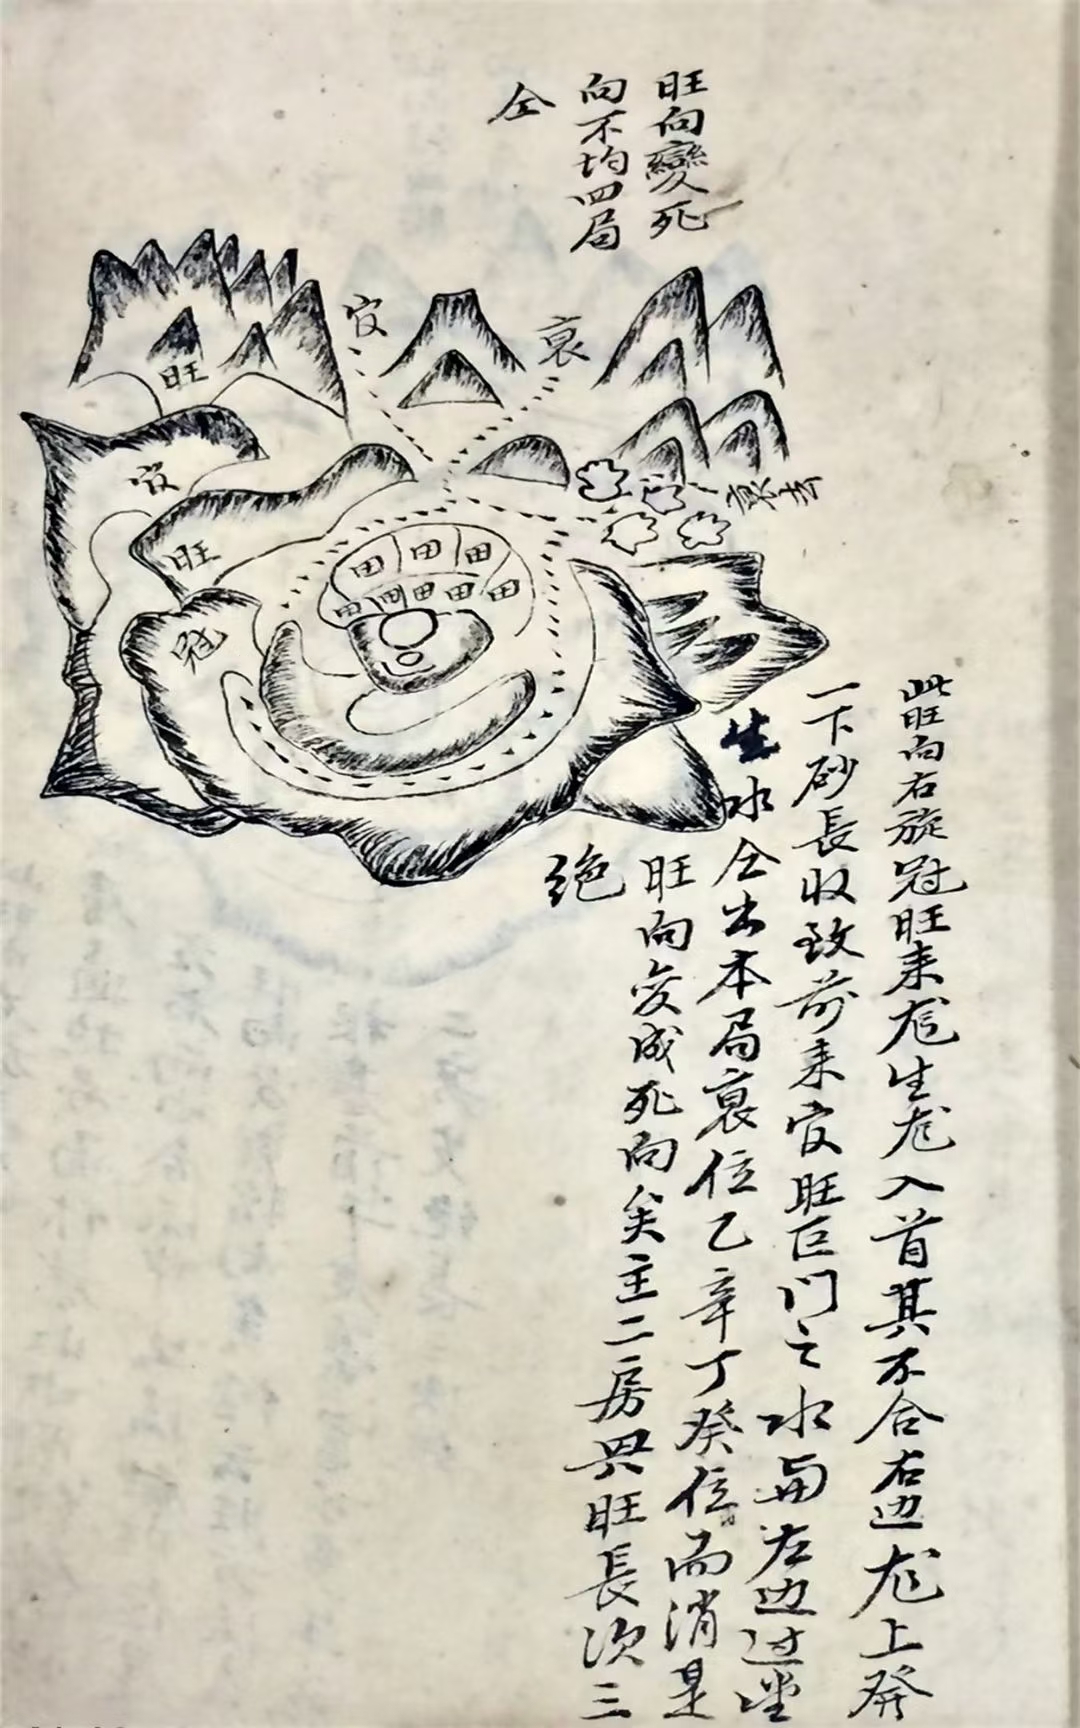 旺向變死
向不均四局
仝
官
衰
旺
官
旺
冠
田田田
田田田田田
此旺向右旋冠旺来龙生龙入首其不合右边龙上發
一下砂長收致前来官旺巨門之水与左边过堂
生水仝出本局衰位乙辛丁癸位而消是
旺向变成死向矣主二房兴旺長次三
绝